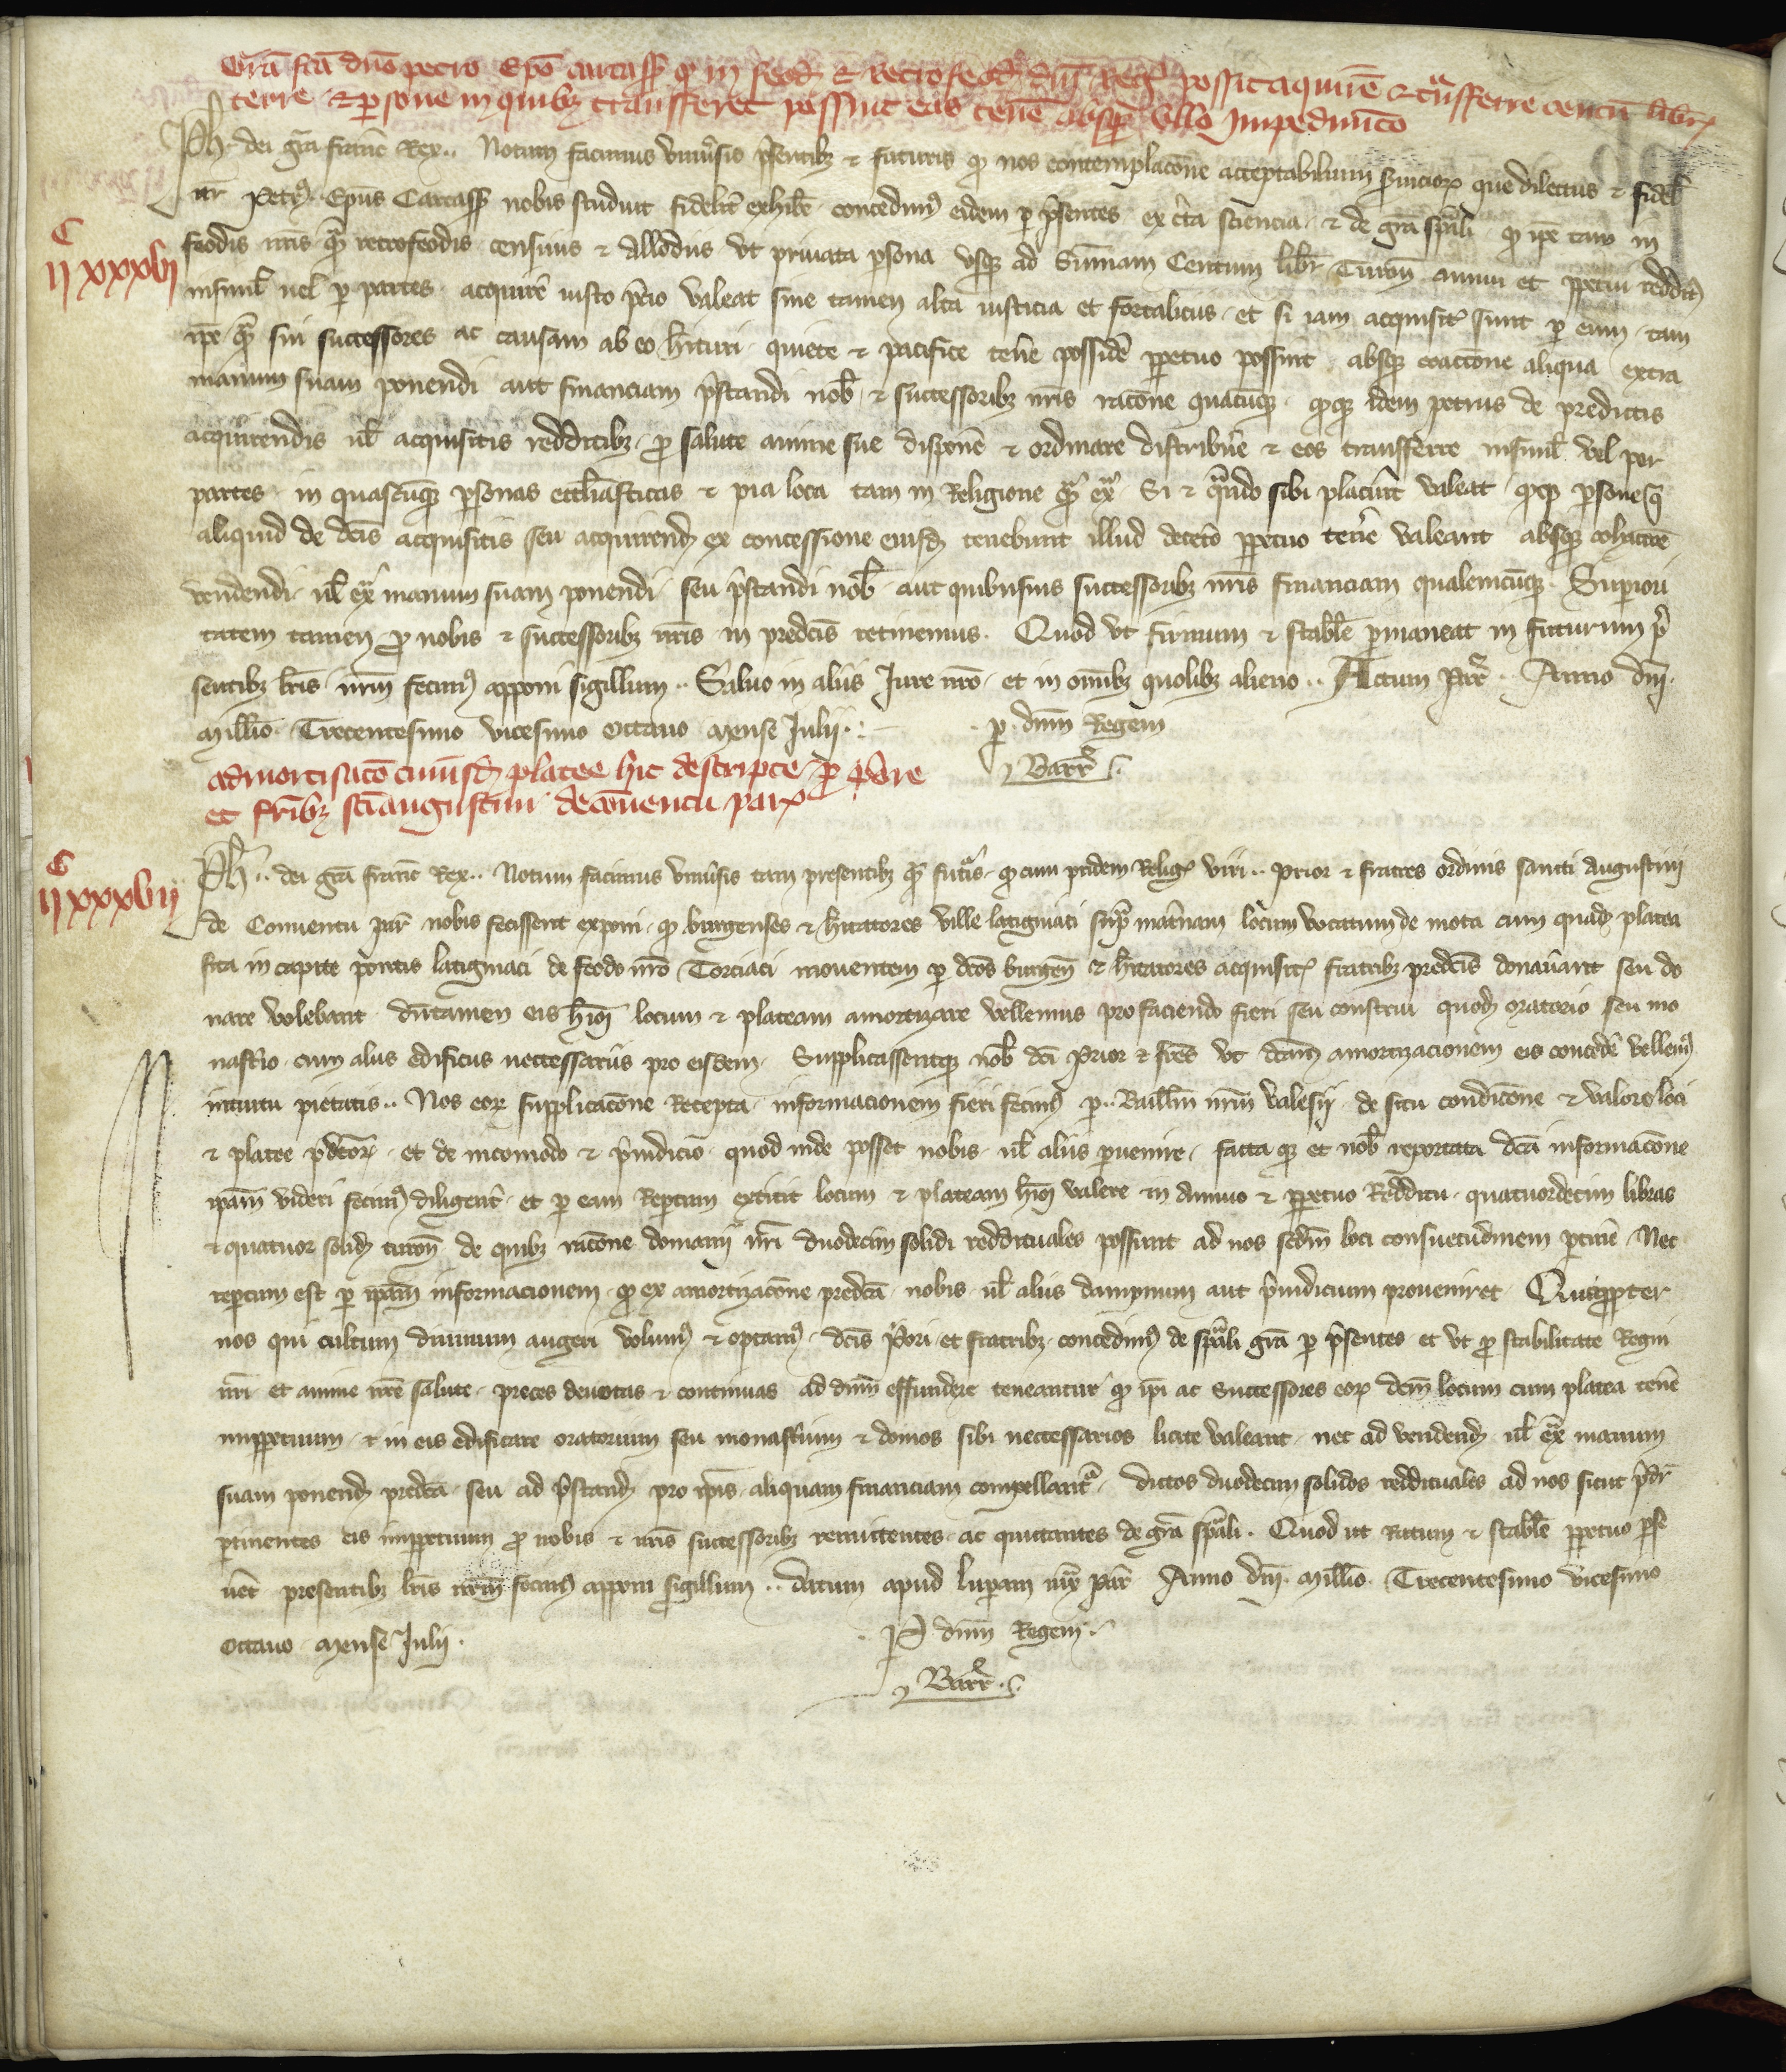 Gr̄a fc̄a dn̄o petro Ep̄o carcass̄ qđ in feod̄ et retrofeod̄ dn̄i Reḡ possit aquirē et trāsferre centū libr̄
terre et persone in quibȝ transferret possint eas tenē absqȝ ullo Impedimēto
Ph̄ dei gr̄a franc̄ Rex.. Notum facimus univ̄sis p̄sentibȝ et futuris qđ nos contemplacōne acceptabilium s̄vicioꝝ que dilectus et fidel̄
nr̄ Petrꝰ Ep̄us Carcass̄ nobis studuit fidelit̄ exhibē concedimꝰ eidem ꝑ p̄sentes ex c̄ta sciencia et de gr̄a sp̄ali qđ ip̄e tam in
IIC XXXVI
feodis nr̄is qᵃm retrofeodis censivis et Allodiis ut privata ꝑsona usqȝ ad Sum̄am Centum libr̄ Turon̄ annui et ꝑpetui reddit̄
insimul̄ vel ꝑ partes acquirē iusto p̄cio valeat sine tamen alta iusticia et fortaliciis et si iam acquisit̄ sunt ꝑ eum tam
ip̄e qᵃm sui successores ac causam ab eo h̄ituri quiete et pacifice ten̄e possidē ꝑpetuo possint absqȝ coactōne aliqua extra
manum suam ponendi aut financiam p̄standi nob̄ et successoribȝ nr̄is racōne quacūqȝ qđqȝ idem petrus de predictis
acquirendis ul̄ acquisitis redditibȝ ꝓ salute anime sue disponē et ordinare distribuē et eos transferre insimul̄ vel per
partes in quascūqȝ ꝑsonas eccl̄iasticas et pia loca tam in Religione qᵃm exᵃ Si et qᵃndo sibi placūit valeat qđqȝ ꝑsone q̄
aliquid de dc̄is acquisitis seu acquirend̄ ex concessione eiusd̄ tenebunt illud decet̄o ꝑpetuo ten̄e valeant absqȝ cohactōe
vendendi ul̄ exᵃ manum suam ponendi seu p̄standi nob̄ aut quibusvis successoribȝ nr̄is financiam qualemcūqȝ. Supiori
tatem tamen ꝓ nobis et successoribȝ nr̄is in predc̄is retinemus. Quod ut firmum et stabil̄e ꝑmaneat in futurum p̄
sentibȝ lr̄is nr̄m fecimꝰ apponi sigillum.. Salvo in aliis Jure nr̄o et in om̄ibȝ quolibȝ alieno.. Actum Par̄.. Anno dn̄i.
Mill̄io. Trecentesimo vicesimo octavo mense Julii.
ꝑ dn̄m Regem
Barr̄.
admortisac̄o cuiusd̄ platee hic descripte ꝓ p̄ore
et fr̄ibȝ sc̄i augustini de conventu par̄
IIC XXXVII
Ph̄.. dei gr̄a franc̄ Rex.. Notum facimus univ̄sis tam presentibȝ qᵃm futˢis qđ cum pridem Religˢ viri.. Prior et fratres ordinis sancti Augustini
de Conventu par̄ nobis fecissent exponi qđ burgenses et h̄itatores ville latigniaci suꝑ mat̄nam locum vocatum de mota cum quad̄ platea
sita in capite pontis latigniaci de feodo nr̄o Torciaci moventem ꝑ dc̄os burgen̄ et h̄itatores acquisit̄ fratribȝ predc̄is donav̄ant seu do
nare volebant dūtamen eis h̄ioī locum et plateam amortizare vellemus pro faciendo fieri seu construi quod̄ oratorio seu mo
nast̄io cum aliis edificiis neccessariis pro eisdem. Supplicassentqȝ nob̄ dc̄i Prior et fr̄es ut dc̄am amortizacionem eis concedē vellemꝰ
intuitu pietatis.. Nos eoꝝ supplicacōne Recepta informacionem fieri fecimꝰ ꝑ.. Baill̄m nr̄m valesii de situ condicōne et valore loci
et platee p̄dc̄oꝝ et de incomodo et p̄iudicio quod inde posset nobis ul̄ aliis ꝑvenire. facta qȝ et nob̄ reportata dc̄a informacōne
ip̄am videri fecimꝰ diligent̄ et ꝑ eam Reꝑtum extitit locum et plateam h̄ioī valere in Annuo et ꝑpetuo Redditu quatuordecim libras
et quatuor solid̄ turon̄ de quibȝ racōne domanii nr̄i duodecim solidi reddituales possunt ad nos scd̄m loci consuetudinem ꝑtinē Nec
reꝑtum est ꝑ ip̄am informacionem qđ ex amortizacōne predc̄a nobis ul̄ aliis dampnum aut p̄iudicium proveniret. Quaꝓpter
nos qui cultum divinum augeri volumꝰ et optamꝰ dc̄is P̄ori et fratribȝ concedimꝰ de sp̄ali gr̄a ꝑ p̄sentes et ut ꝓ stabilitate Regni
nr̄i et anime nr̄e salute preces devotas et continuas ad dn̄m effundere teneantur qđ ip̄i ac Successores eoꝝ dc̄m locum cum platea tenē
imꝑpetuum et in eis edificare oratorium seu monast̄ium et domos sibi neccessarios licite valeant nec ad vendend̄ ul̄ exᵃ manum
suam ponend̄ predc̄a seu ad p̄stand̄ pro ip̄is aliquam financiam compellantˢ dictos duodecim solidos reddituales ad nos sicut p̄dr̄
ꝑtinentes eis imꝑpetuum ꝓ nobis et nr̄is successoribȝ remittentes ac quittantes de gr̄a sp̄ali. Quod ut Ratum et stabil̄e ꝑpetuo ꝑse
vēt presentibȝ lr̄is nr̄m fecimꝰ apponi sigillum.. datum apud luꝑam iuxᵃ Par̄ Anno dn̄i. Mill̄io. Trecentesimo vicesimo
octavo mense Julii.
P dn̄m Regem
Barr̄.